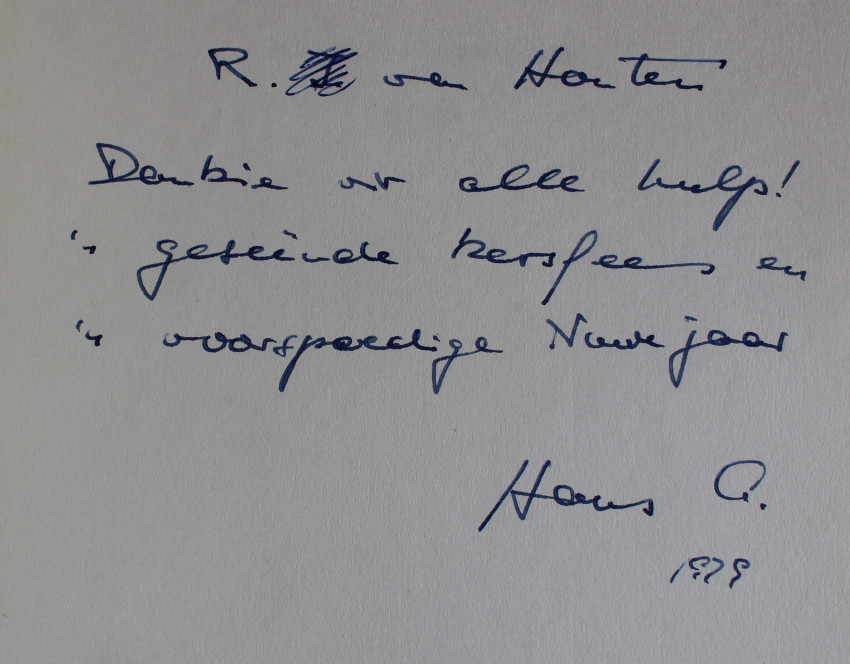 R. van Houten
Dankie vir alle hulp!
'n geseënde kersfees en
'n voorspoedige Nuwejaar
Hans G.
1979